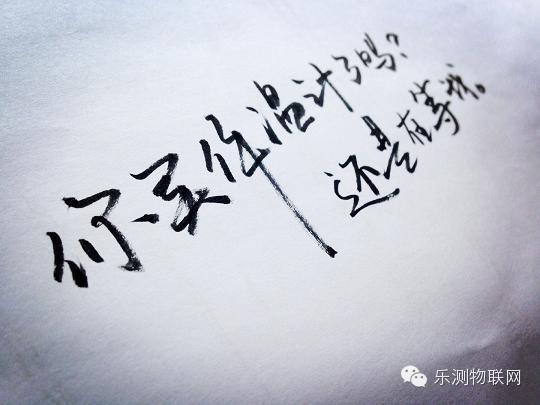 你买体温计了吗？
还是在等我。
乐测物联网